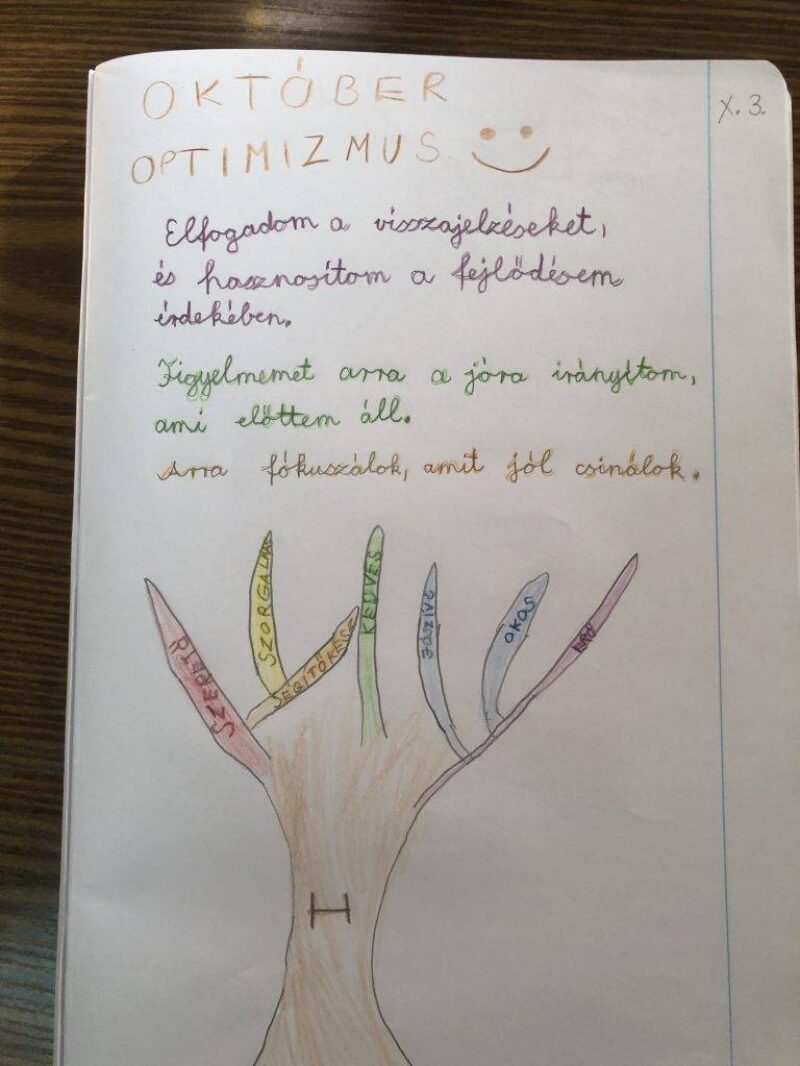 OKTÓBER
X. 3.
OPTIMIZMUS
Elfogadom a visszajelzéseket,
és hasznosítom a fejlődésem
érdekében.
Figyelmemet arra a jóra irányítom,
ami előttem áll.
Arra fókuszálok, amit jól csinálok.
SZERETŐ
SZORGALMAS
SEGÍTŐKÉSZ
KEDVES
OKOS
ERŐ
H